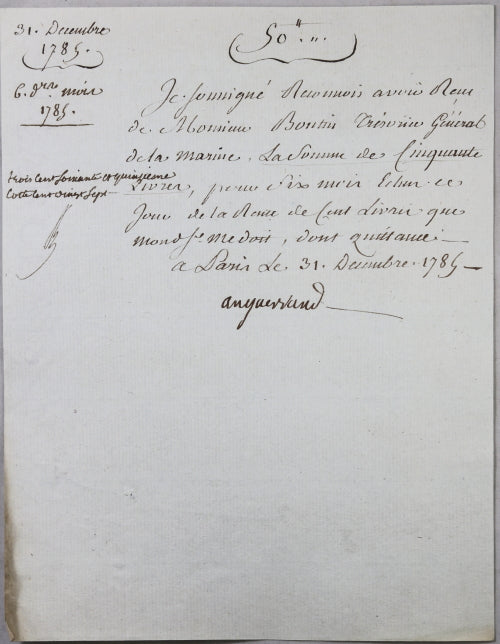 31. Decembre
1785.
50ᵗᵗ „ „
6. dʳˢ mois
1785.
Je Soussigné Reconnois avoir Reçu
de Monsieur Boutin Trésorier Général
de la Marine, La Somme de Cinquante
Livres, pour Six mois Echus ce
Jour de la Rente de Cent Livres que
mond. Sʳ me doit, dont quittance.
a Paris Le 31. Decembre. 1785
trois Cent Soixante et quinzieme
Cotte Cent vingt Sept
anguerrand